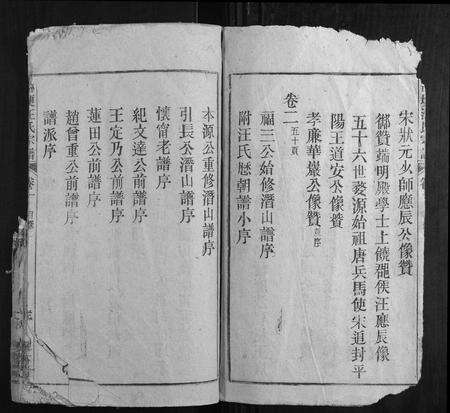 宋狀元少師應辰公像贊
御贊端明殿學士上饒𨞬侯汪應辰像
五十六世婺源始祖唐兵馬使宋追封平
陽王道安公像贊
孝廉華巖公像贊 並序
卷二 五十頁
福三公始修潛山譜序
附汪氏歷朝譜小序
本源公重修潛山譜序
引長公潛山譜序
懷甯老譜序
紀文達公前譜序
王定乃公前譜序
蓮田公前譜序
趙曾重公前譜序
譜派序